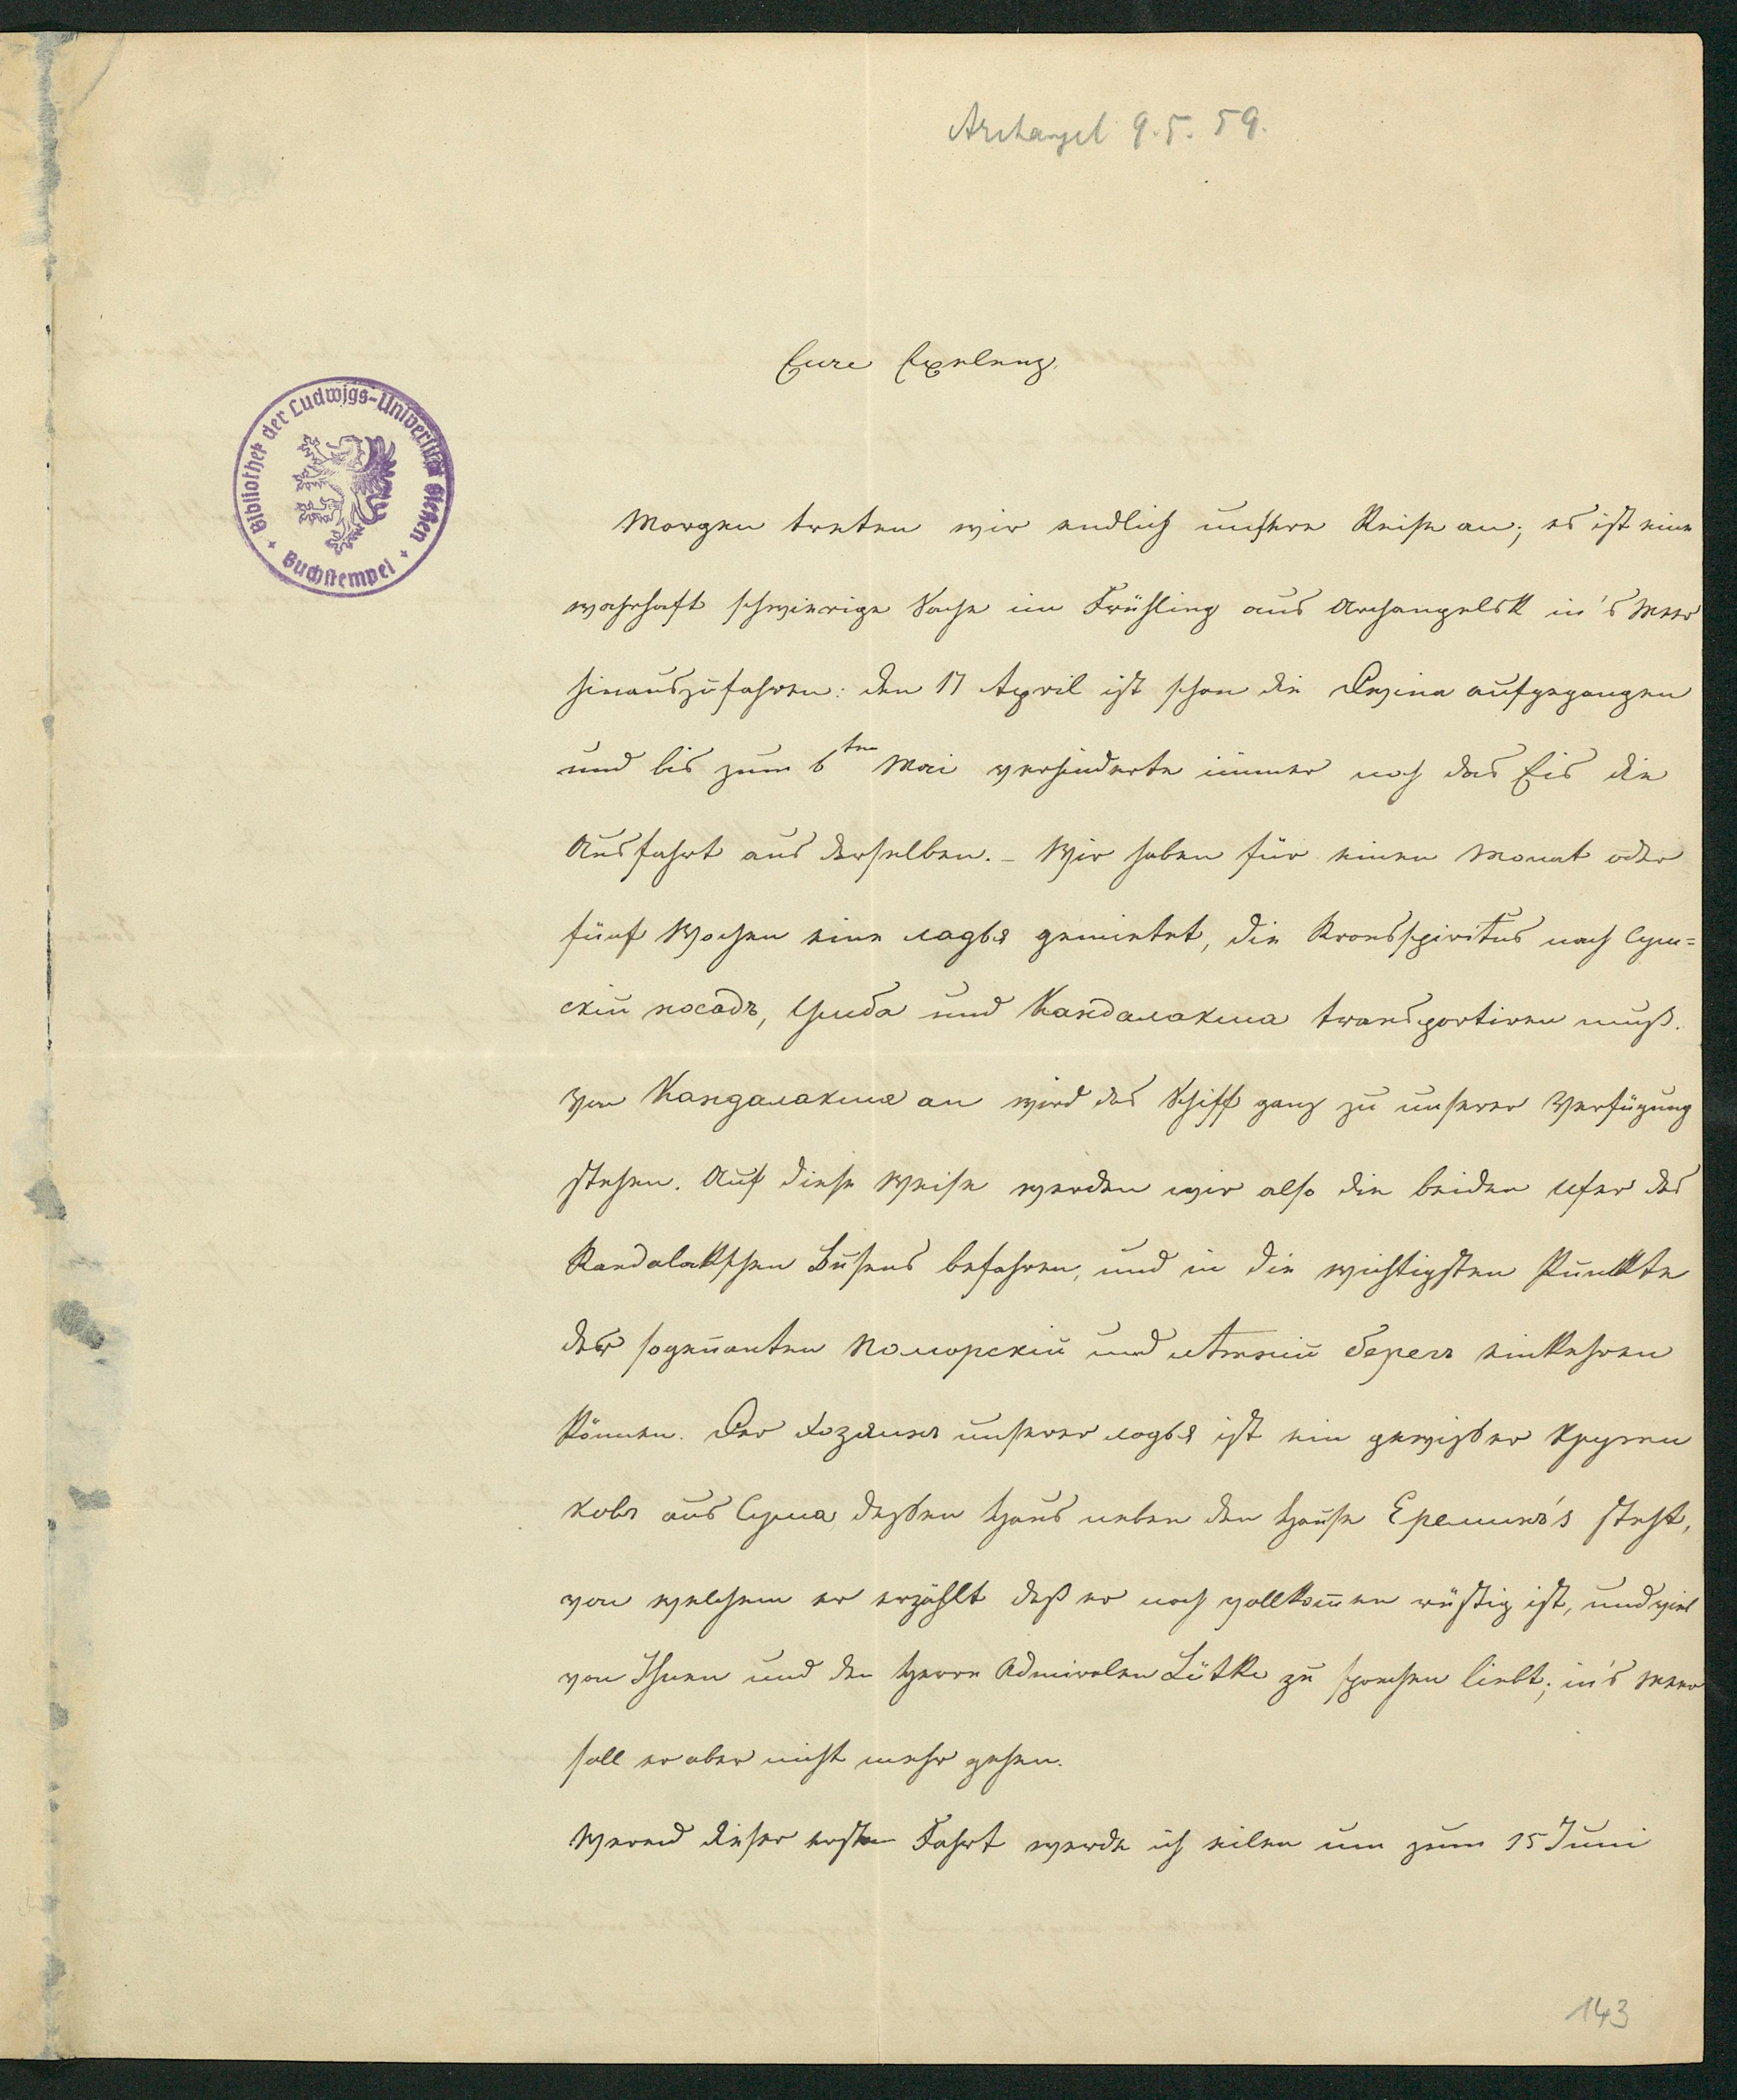 Archangel 9.5.59.
Eure Exelenz.
Bibliothek der Ludwigs-Universität Gießen
Buchstempel
Morgen treten wir endlich unsere Reise an; es ist eine
wahrhaft schwierige Sache im Frühling aus Archangelsk in's Meer
hinauszufahren: den 17 April ist schon die Dwina aufgegangen
und bis zum 6ten Mai verhinderte immer noch das Eis die
Ausfahrt aus derselben. – Wir haben für einen Monat oder
fünf Wochen eine ладья gemietet, die Kronsspiritus nach Сум=
скiй посадъ, Умба und Кандалакша transportiren muß.
Von Кандалакша an wird das Schiff ganz zu unserer Verfügung
stehen. Auf diese Weise werden wir also die beiden Ufer des
Kandalakschen Busens befahren, und in die wichtigsten Punkte
der sogenanten Поморскiй und лѣтнiй берегъ einkehren
können. Der хозяинъ unserer ладья ist ein gewißer
ковъ aus Сума, deßen Haus neben den Hause Ереминъ's steht,
von welchem er erzählt daß er noch vollkommen rüstig ist, und viel
von Ihnen und den Herrn Admiralen Lütke zu sprechen liebt; in's Meer
soll er aber nicht mehr gehen.
Werend dieser ersten Fahrt werde ich eilen um zum 15 Juni
143